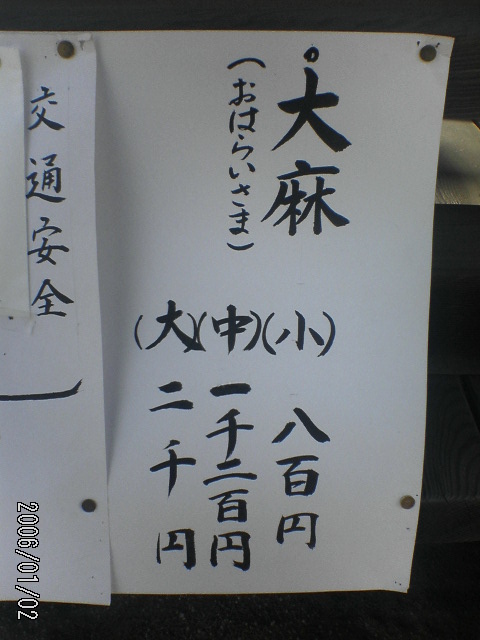 大麻
(おはらいさま)
(小) 八百円
(中) 一千二百円
(大) 二千円
交通安全
2006/01/02